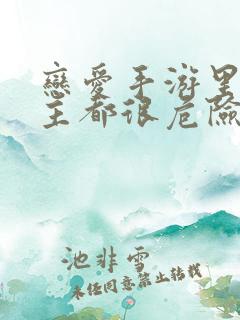 戀愛手游里
主都很危險
池非雪
未經同意禁止轉載